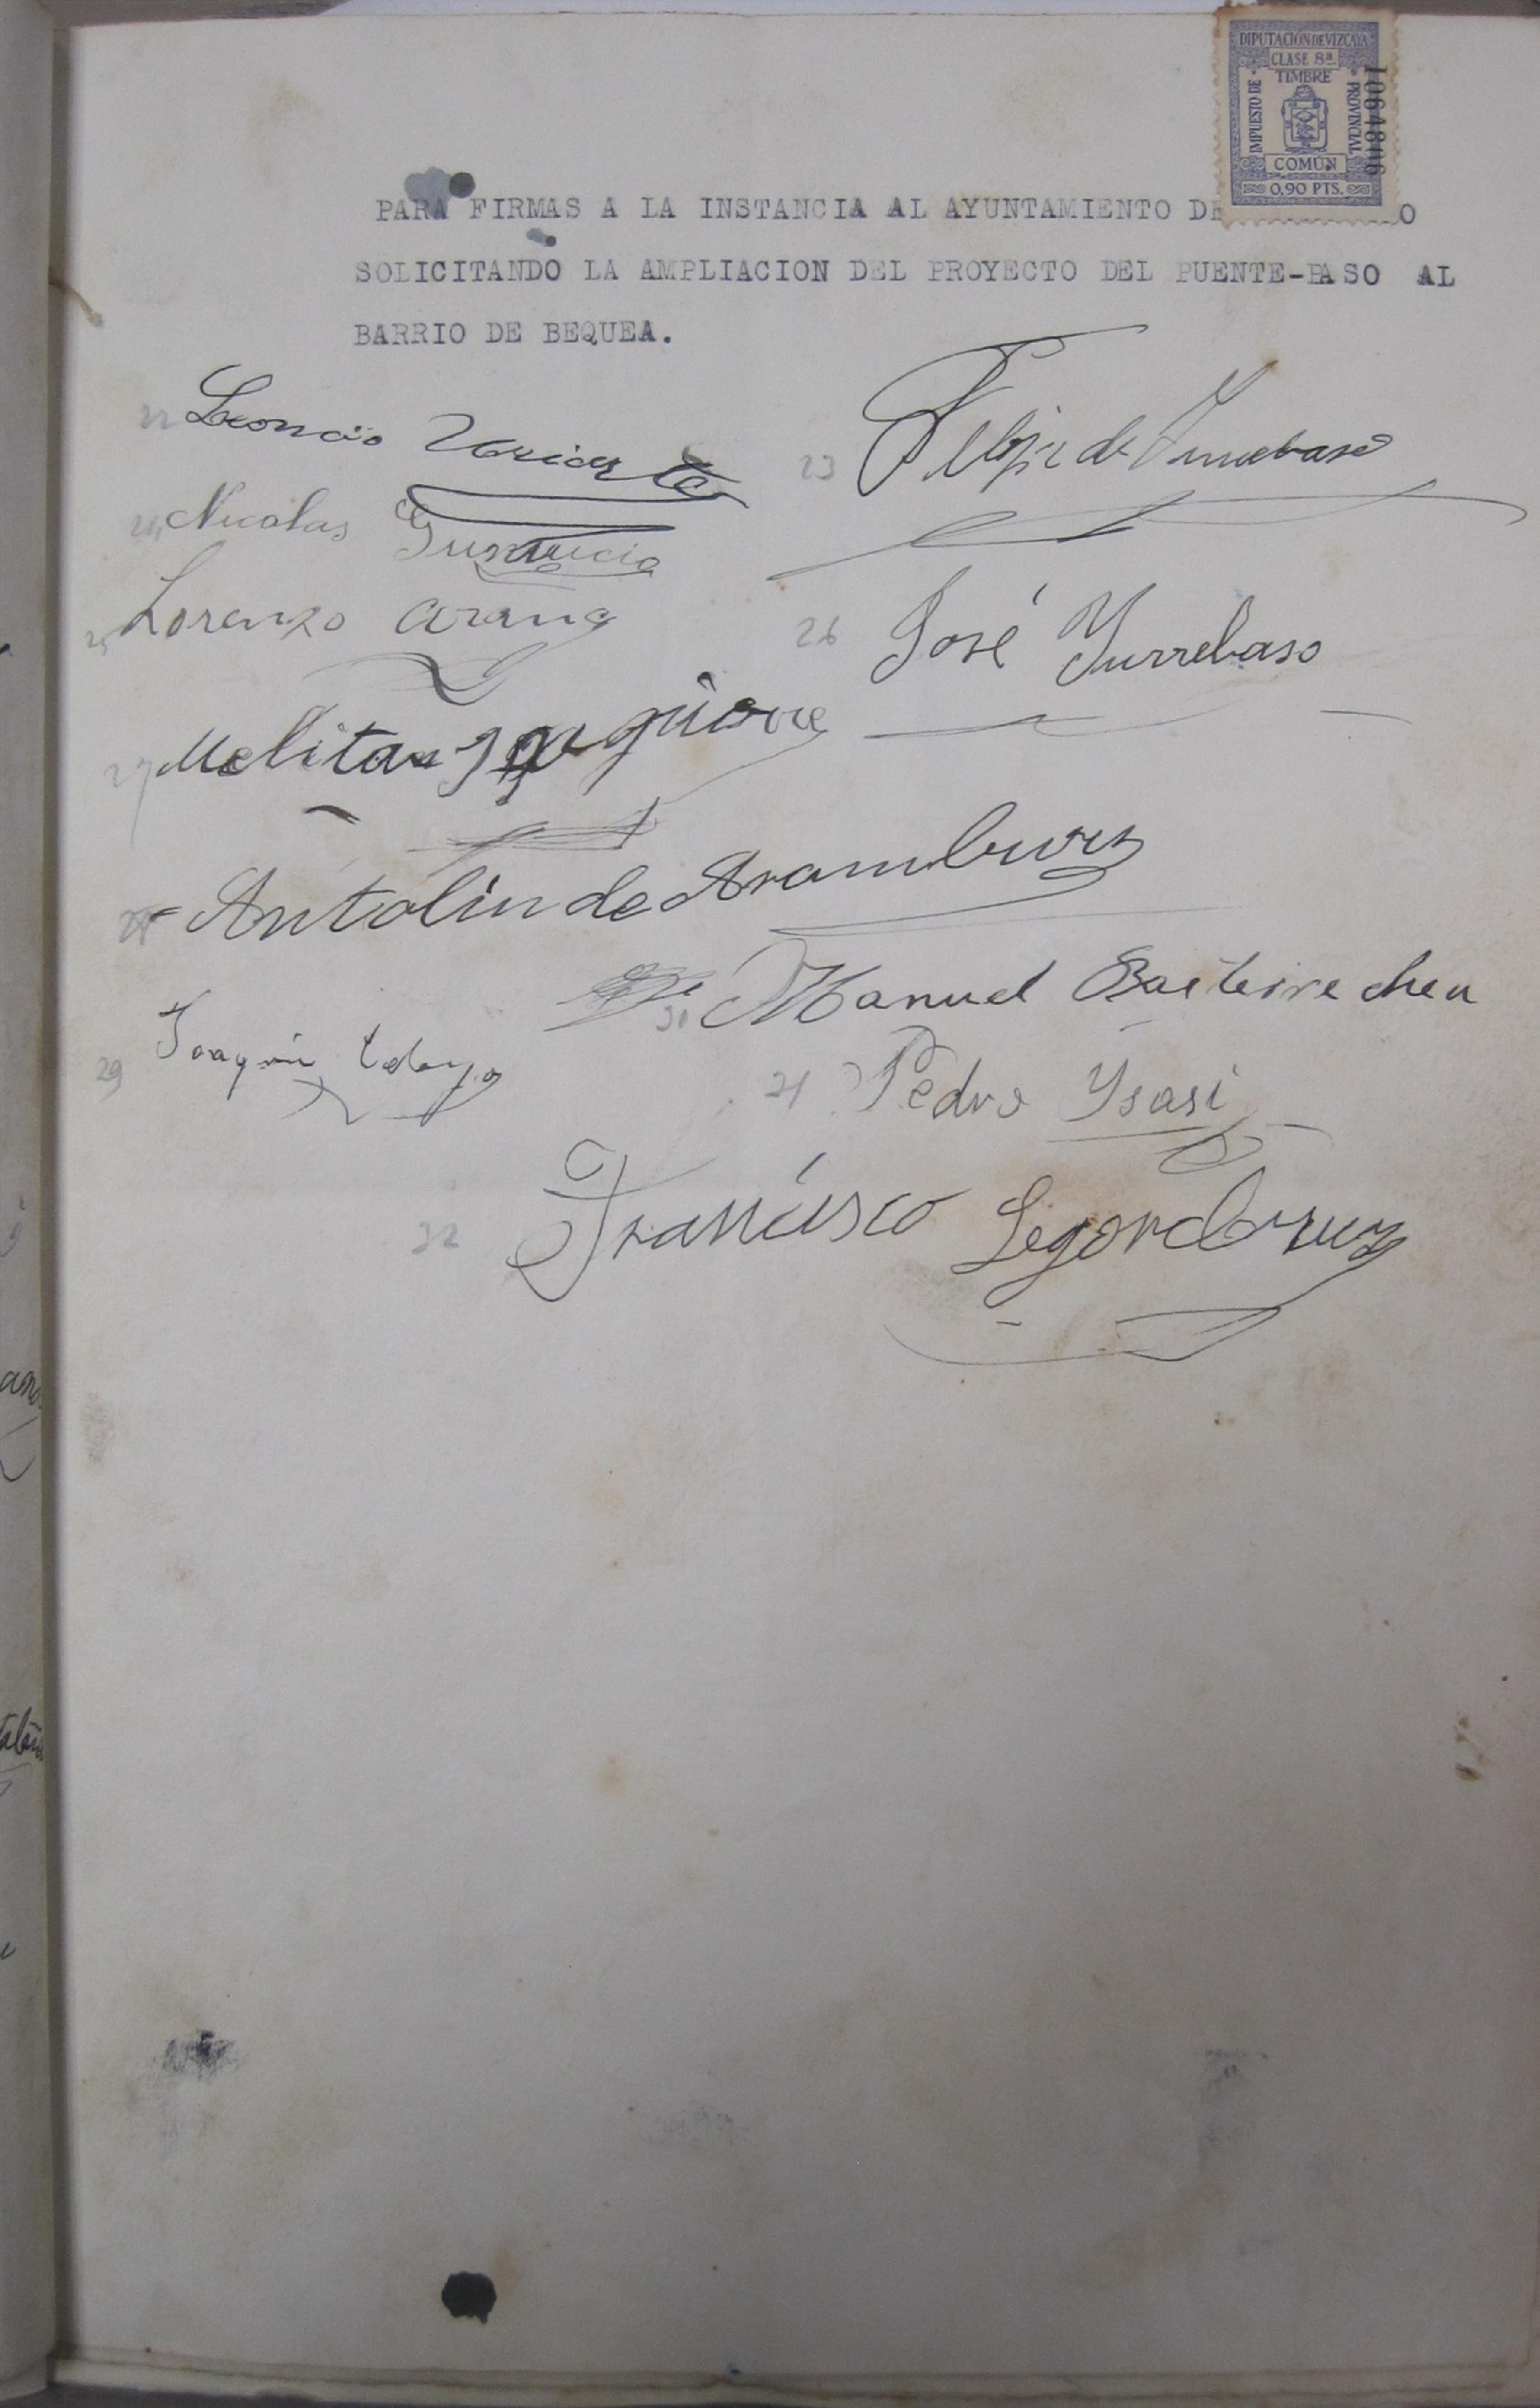 DIPUTACIÓN DE VIZCAYA
CLASE 8ª
TIMBRE
IMPUESTO DE
PROVINCIAL
COMÚN
0,90 PTS.
PARA FIRMAS A LA INSTANCIA AL AYUNTAMIENTO DE O
SOLICITANDO LA AMPLIACION DEL PROYECTO DEL PUENTE-PASO AL
BARRIO DE BEQUEA.
22 Leoncio Uriarte
23 Felipe de Yurrebaso
24 Nicolas
25 Lorenzo Arana
26 José Yurrebaso
27
Antolin de Aramburu
29 Joaquin
30 Manuel Basterrechea
31 Pedro Ysasi
32 Francisco Legorburu